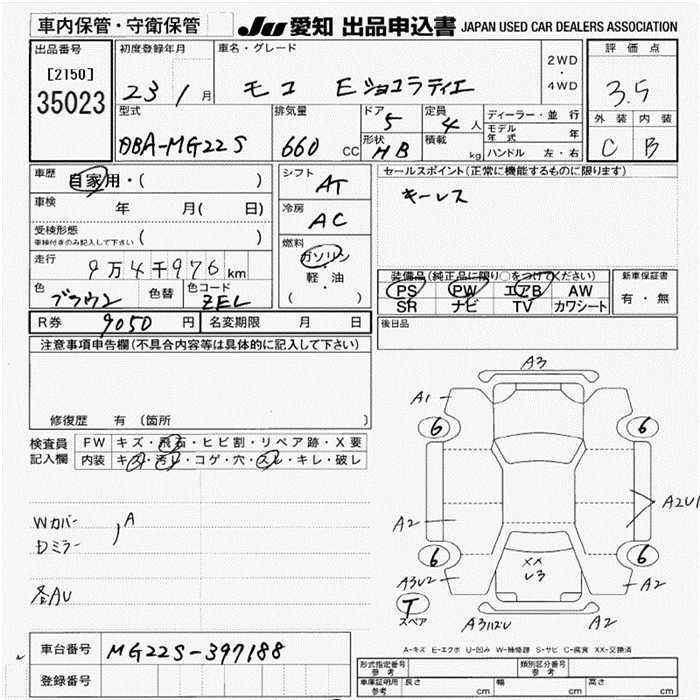 車内保管・守衛保管
JU 愛知 出品申込書 JAPAN USED CAR DEALERS ASSOCIATION
出品番号
[2150]
35023
初度登録年月
23 1月
車名・グレード
モコ Eショコラティエ
2WD
・
4WD
評価点
3.5
外装 内装
C B
型式
DBA-MG22S
排気量
660 CC
ドア
5
形状
HB
定員
4人
積載
kg
ディーラー・並行
モデル年式 年
ハンドル 左・右
車歴
自家用・( )
車検
年 月( 日)
受検形態
車検付きのみ記入して下さい ( )
走行
9万4千976km
色
ブラウン
色替
色コード
ZEL
シフト
AT
冷房
AC
燃料
ガソリン
軽・油
( )
セールスポイント(正常に機能するものに限ります)
キーレス
装備品(純正品に限り○をつけてください)
PS PW エアB AW
SR ナビ TV カワシート
新車保証書
有・無
R券 9050円 名変期限 月 日
後日品
注意事項申告欄(不具合内容等は具体的に記入して下さい)
修復歴 有(箇所 )
検査員記入欄
FW キズ・飛石・ヒビ割・リペア跡・X要
内装 キズ・汚れ・コゲ・穴・スレ・キレ・破レ
Wカバー
Dミラー
A
A3
A1
6
6
A2
A2U1
6
6
XX
U3
A3U2
A2
T
スペア
A2
A-キズ E-エクボ U-凹み W-補修跡 S-サビ C-腐食 XX-交換済
車台番号 MG22S-397188
登録番号
形式指定番号
参考
類別区分番号
参考
車庫証明用
参考
長さ cm 幅 cm 高さ cm